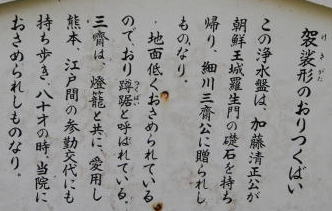 袈裟形のおりつくばい
けさがた
この浄水盤は、加藤清正公が
朝鮮王城羅生門の礎石を持ち
帰り、細川三齋公に贈られし
ものなり。
地面低くおさめられている
のでおり蹲踞と呼ばれている。
つくばい
三齋は、燈籠と共に、愛用し
熊本、江戸間の参勤交代にも
持ち歩き、八十才の時、当院に
おさめられしものなり。